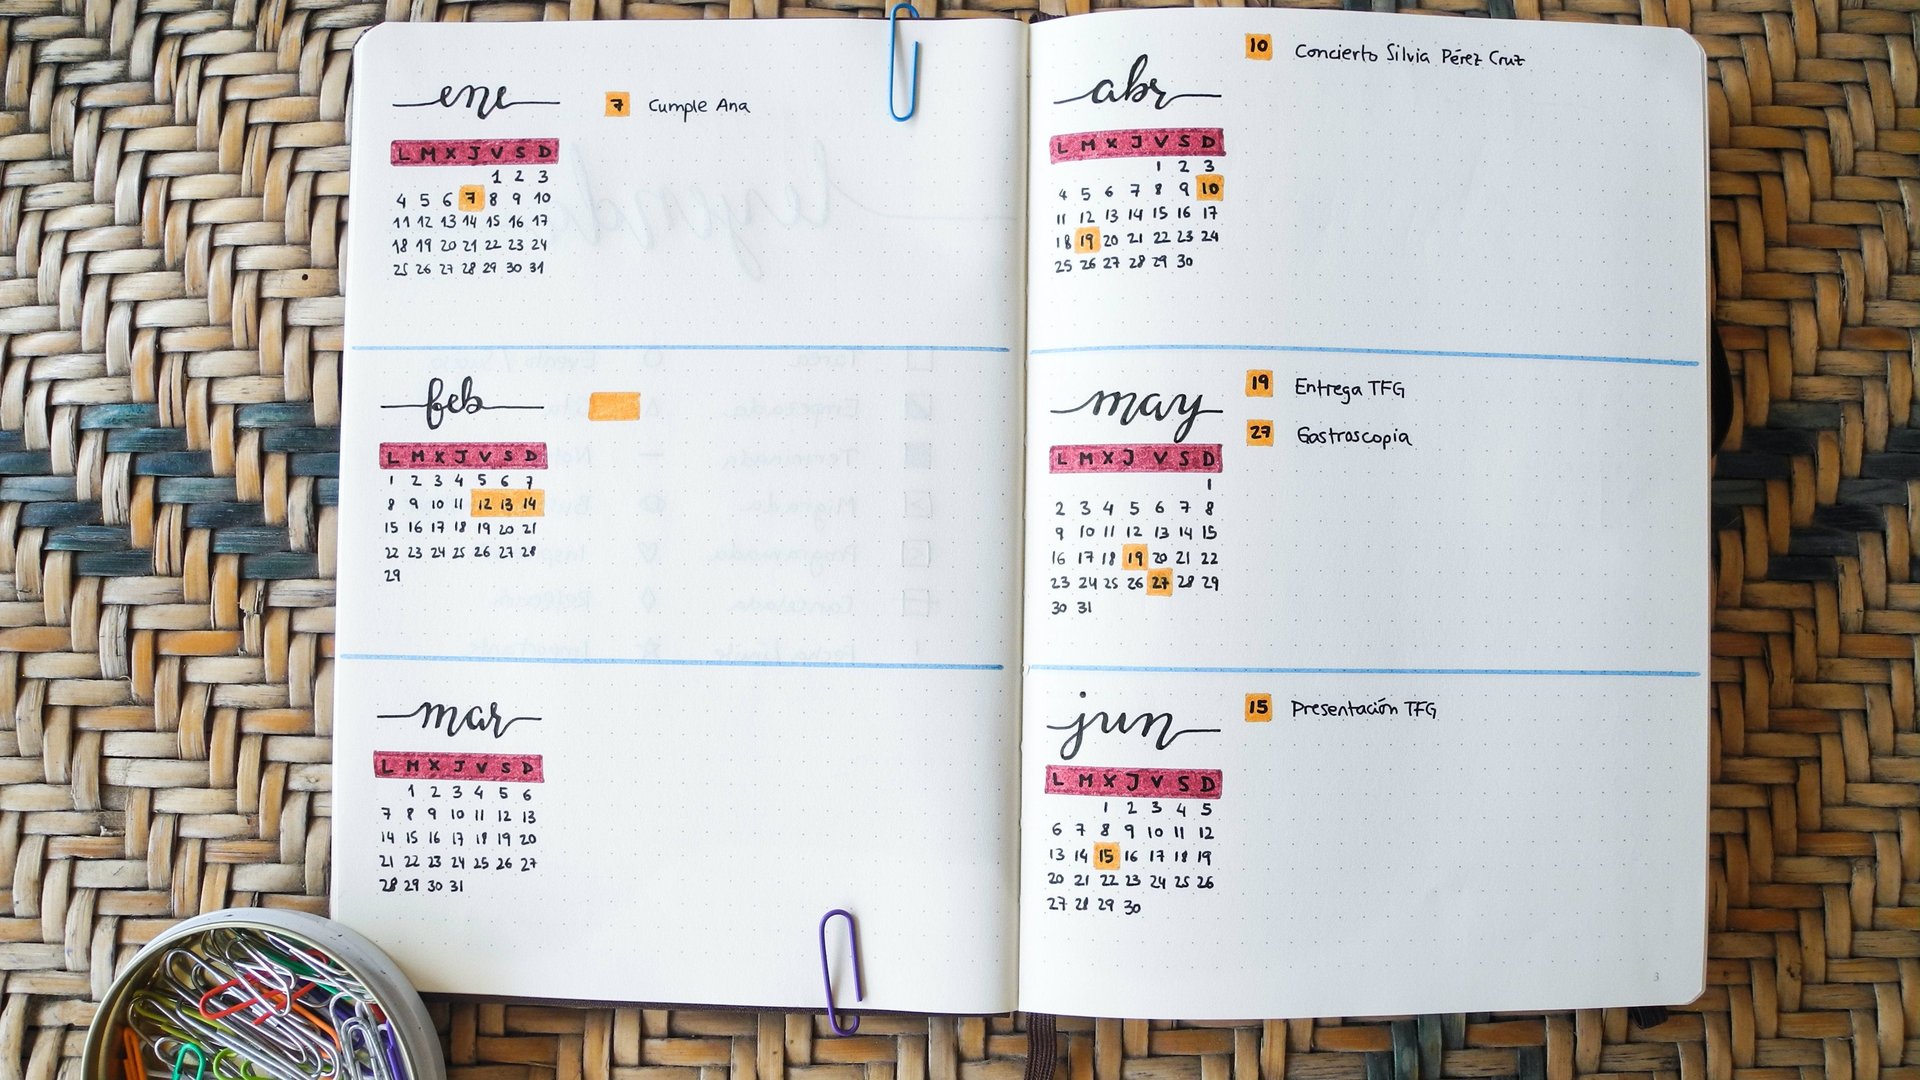 ene
7 Cumple Ana
L M X J V S D
1 2 3
4 5 6 7 8 9 10
11 12 13 14 15 16 17
18 19 20 21 22 23 24
25 26 27 28 29 30 31
feb
L M X J V S D
1 2 3 4 5 6 7
8 9 10 11 12 13 14
15 16 17 18 19 20 21
22 23 24 25 26 27 28
29
mar
L M X J V S D
1 2 3 4 5 6
7 8 9 10 11 12 13
14 15 16 17 18 19 20
21 22 23 24 25 26 27
28 29 30 31
abr
10 Concierto Silvia Pérez Cruz
L M X J V S D
1 2 3
4 5 6 7 8 9 10
11 12 13 14 15 16 17
18 19 20 21 22 23 24
25 26 27 28 29 30
may
19 Entrega TFG
27 Gastroscopia
L M X J V S D
1
2 3 4 5 6 7 8
9 10 11 12 13 14 15
16 17 18 19 20 21 22
23 24 25 26 27 28 29
30 31
jun
15 Presentación TFG
L M X J V S D
1 2 3 4 5
6 7 8 9 10 11 12
13 14 15 16 17 18 19
20 21 22 23 24 25 26
27 28 29 30
3